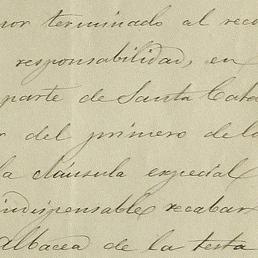 por terminado al reca
responsabilidad, en
parte de Santa Cata
r del primero de lo
la cláusula especial
indispensable recabar
albacea de la testa